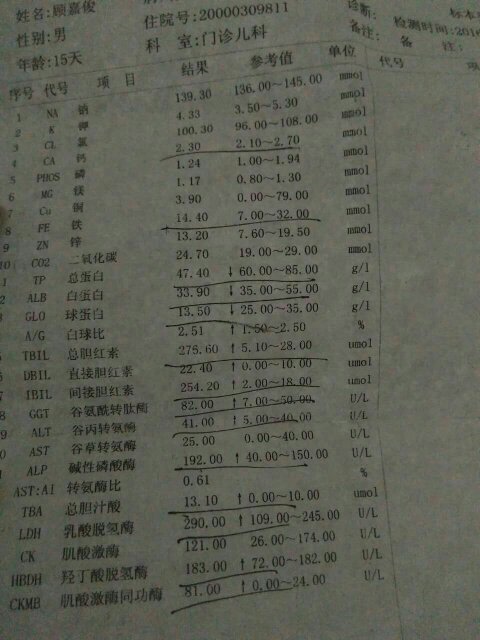 姓名:顾嘉俊 住院号:20000309811 诊断: 标本
性别:男 科 室:门诊儿科 备注: 检测时间:201
年龄:15天 备 注:
序号 代号 项 目 结果 参考值 单位 代号 项
1 NA 钠 139.30 136.00～145.00 mmol
2 K 钾 4.33 3.50～5.30 mmol
3 CL 氯 100.30 96.00～108.00 mmol
4 CA 钙 2.30 2.10～2.70 mmol
5 PHOS 磷 1.24 1.00～1.94 mmol
6 MG 镁 1.17 0.80～1.30 mmol
7 Cu 铜 3.90 0.00～79.00 mmol
8 FE 铁 14.40 7.00～32.00 mmol
9 ZN 锌 13.20 7.60～19.50 mmol
10 CO2 二氧化碳 24.70 19.00～29.00 mmol
1 TP 总蛋白 47.40 ↓ 60.00～85.00 g/l
2 ALB 白蛋白 33.90 ↓ 35.00～55.00 g/l
3 GLO 球蛋白 13.50 ↓ 25.00～35.00 g/l
A/G 白球比 2.51 ↑ 1.50～2.50 %
TBIL 总胆红素 275.60 ↑ 5.10～28.00 umol
DBIL 直接胆红素 22.40 ↑ 0.00～10.00 umol
7 IBIL 间接胆红素 254.20 ↑ 2.00～18.00 umol
8 GGT 谷氨酰转肽酶 82.00 ↑ 7.00～50.00 U/L
9 ALT 谷丙转氨酶 41.00 ↑ 5.00～40.00 U/L
AST 谷草转氨酶 25.00 0.00～40.00 U/L
ALP 碱性磷酸酶 192.00 ↑ 40.00～150.00 U/L
AST:Al 转氨酶比 0.61 %
TBA 总胆汁酸 13.10 ↑ 0.00～10.00 umol
LDH 乳酸脱氢酶 290.00 ↑ 109.00～245.00 U/L
CK 肌酸激酶 121.00 26.00～174.00 U/L
HBDH 羟丁酸脱氢酶 183.00 ↑ 72.00～182.00 U/L
CKMB 肌酸激酶同功酶 81.00 ↑ 0.00～24.00 U/L